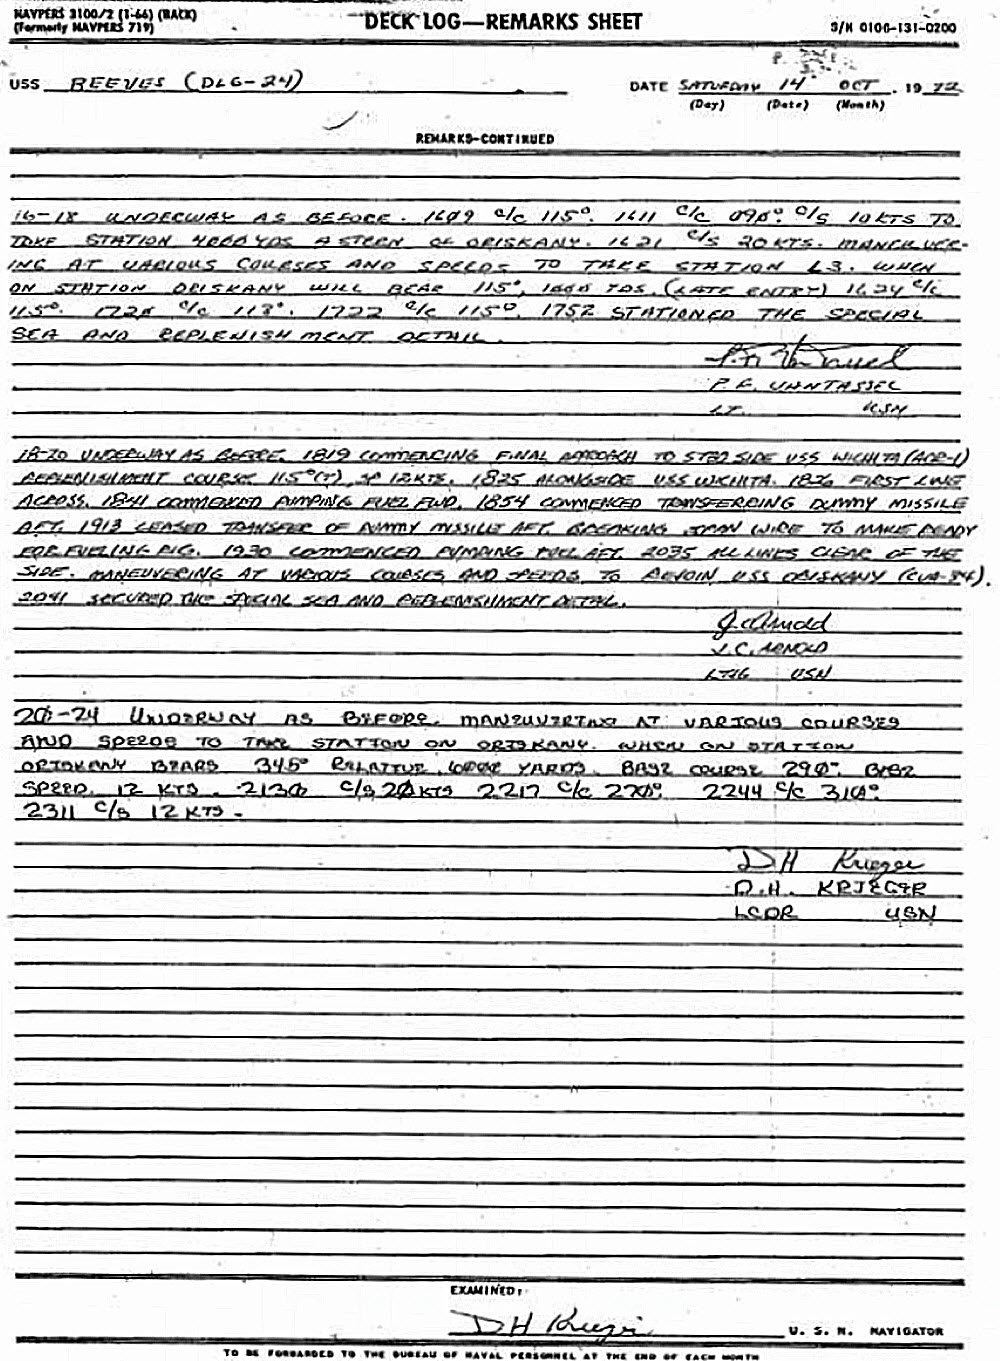 NAVPERS 3100/2 (1-66) (BACK)
(Formerly NAVPERS 719)
DECK LOG—REMARKS SHEET
S/N 0106-131-0200
USS REEVES (DLG-24)
DATE SATURDAY 14 OCT, 19 72
(Day) (Date) (Month)
REMARKS-CONTINUED
16-18 UNDERWAY AS BEFORE. 1609 C/C 115°. 1611 C/C 090°. C/S 10 KTS TO
TAKE STATION 4000 YDS ASTERN OF ORISKANY. 1621 C/S 20 KTS. MANEUVER-
ING AT VARIOUS COURSES AND SPEEDS TO TAKE STATION L3. WHEN
ON STATION ORISKANY WILL BEAR 115°, 1000 YDS. (LATE ENTRY) 1624 C/C
115°. 1720 C/C 118°. 1722 C/C 115°. 1752 STATIONED THE SPECIAL
SEA AND REPLENISHMENT DETAIL.
VANTASSEL
LT. USN
18-20 UNDERWAY AS BEFORE. 1819 COMMENCING FINAL APPROACH TO STBD SIDE USS WICHITA (AOR-1)
REPLENISHMENT COURSE 115°(T), SP 12 KTS. 1825 ALONGSIDE USS WICHITA. 1826 FIRST LINE
ACROSS. 1841 COMMENCED PUMPING FUEL FWD. 1854 COMMENCED TRANSFERRING DUMMY MISSILE
AFT. 1913 CEASED TRANSFER OF DUMMY MISSILE AFT. BREAKING SPAN WIRE TO MAKE READY
FOR FUELING RIG. 1930 COMMENCED PUMPING FUEL AFT. 2035 ALL LINES CLEAR OF THE
SIDE. MANEUVERING AT VARIOUS COURSES AND SPEEDS TO REJOIN USS ORISKANY (CVA-34).
2041 SECURED THE SPECIAL SEA AND REPLENISHMENT DETAIL.
J C Arnold
J.C. ARNOLD
LTJG USN
20-24 UNDERWAY AS BEFORE. MANEUVERING AT VARIOUS COURSES
AND SPEEDS TO TAKE STATION ON ORISKANY. WHEN ON STATION
ORISKANY BEARS 345° RELATIVE, YARDS. BASE COURSE 290°. BASE
SPEED. 12 KTS. 2130 C/S 20 KTS 2217 C/C 270°. 2244 C/C 310°.
2311 C/S 12 KTS.
D H Krieger
D.H. KRIEGER
LCDR USN
EXAMINED:
D H Krieger U. S. N. NAVIGATOR
TO BE FORWARDED TO THE BUREAU OF NAVAL PERSONNEL AT THE END OF EACH MONTH